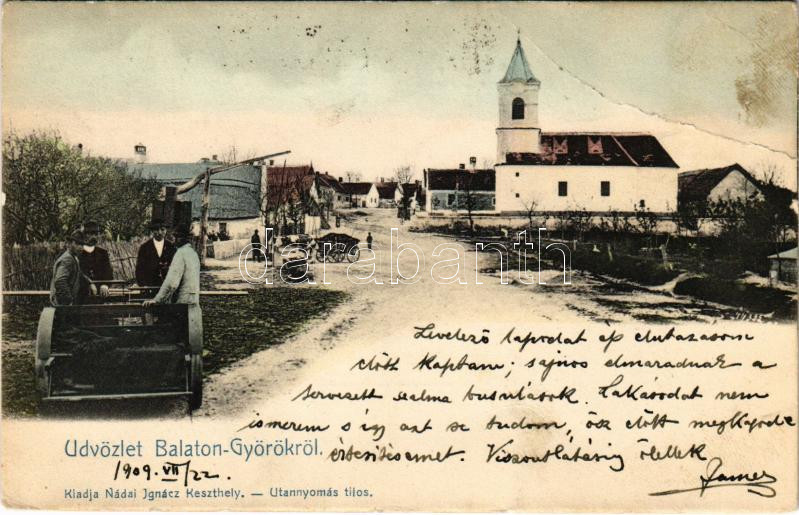 darabanth
Levelező lapodat ép elutazasom
előtt kaptam; sajnos elmaradnak a
tervezett szalma busulások. Lakásodat nem
ismerem s így azt se tudom, ősz előtt megkapod-e
értesitésemet. Viszontlátásig ölellek
Üdvözlet Balaton-Györökről.
1909. VII/22.
Kiadja Nádai Ignácz Keszthely. — Utannyomás tilos.